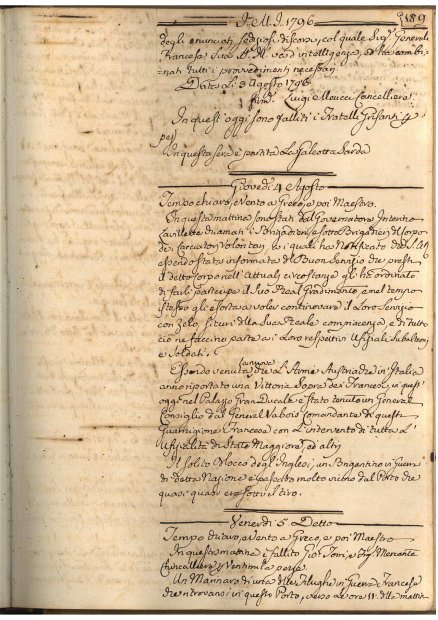 I.M.I. 1796
189
degl'enunciati sediziosi discorsi, col quale Sig.r Generale
Francese Sua A. R. va d'intelligenza, ed ha combi-
nati tutti i provvedimenti necessarj
Data li 3 Agosto 1796
firm. Luigi Cancelliere
In quest'oggi sono falliti i Fratelli Grisanti
In questa sera è partita la Galeotta Sarda
Giovedì 4 Agosto
Tempo chiaro, e Vento a Greco, e poi Maestro.
In questa mattina sono stati dal Governatore Interino
Lavillette chiamati i Brigadieri, e sotto Brigadieri del Corpo
dei Cacciatori Volontarj, ai quali ha Notificato che S.A.R.
essendo stata informata del Buon Servizio che prest
il detto Corpo nell'Attuali circostanze gli ha ordinato
di farli partecipe il Suo Real Gradimento, e nel tempo
istesso gli esorta a voler continovare il Loro Servizio
con Zelo, sicuri della Sua Reale compiacenza, e di tutto
ciò ne faccino parte ai Loro respettivi Ufiziali Subalterni
e Soldati.
Essendo venuta nuove che l'Armi Austriache in Italia
anno riportato una Vittoria Sopra dei Francesi, in quest'
oggi nel Palazzo Gran Ducale è stato tenuto un General
Consiglio dal General Vabois comandante di questa
Guarnigione Francese con l'intervento di tutta l'
Ufizialità di Stato Maggiore, ed altri
Il solito Blocco degl'Inglesi, un Brigantino in Guerra
di detta Nazione è passato molto vicino dal Porto che
quasi quasi era sotto il tiro.
Venerdì 5 Detto
Tempo chiaro, e Vento a Greco, e poi Maestro
In questa mattina è fallito Gio: Mercante
Chincagliere
Un Marinaro di una delle Filughe in Guerra Francese
che si trovano in questo Porto, verso le ore 11 della mattin-